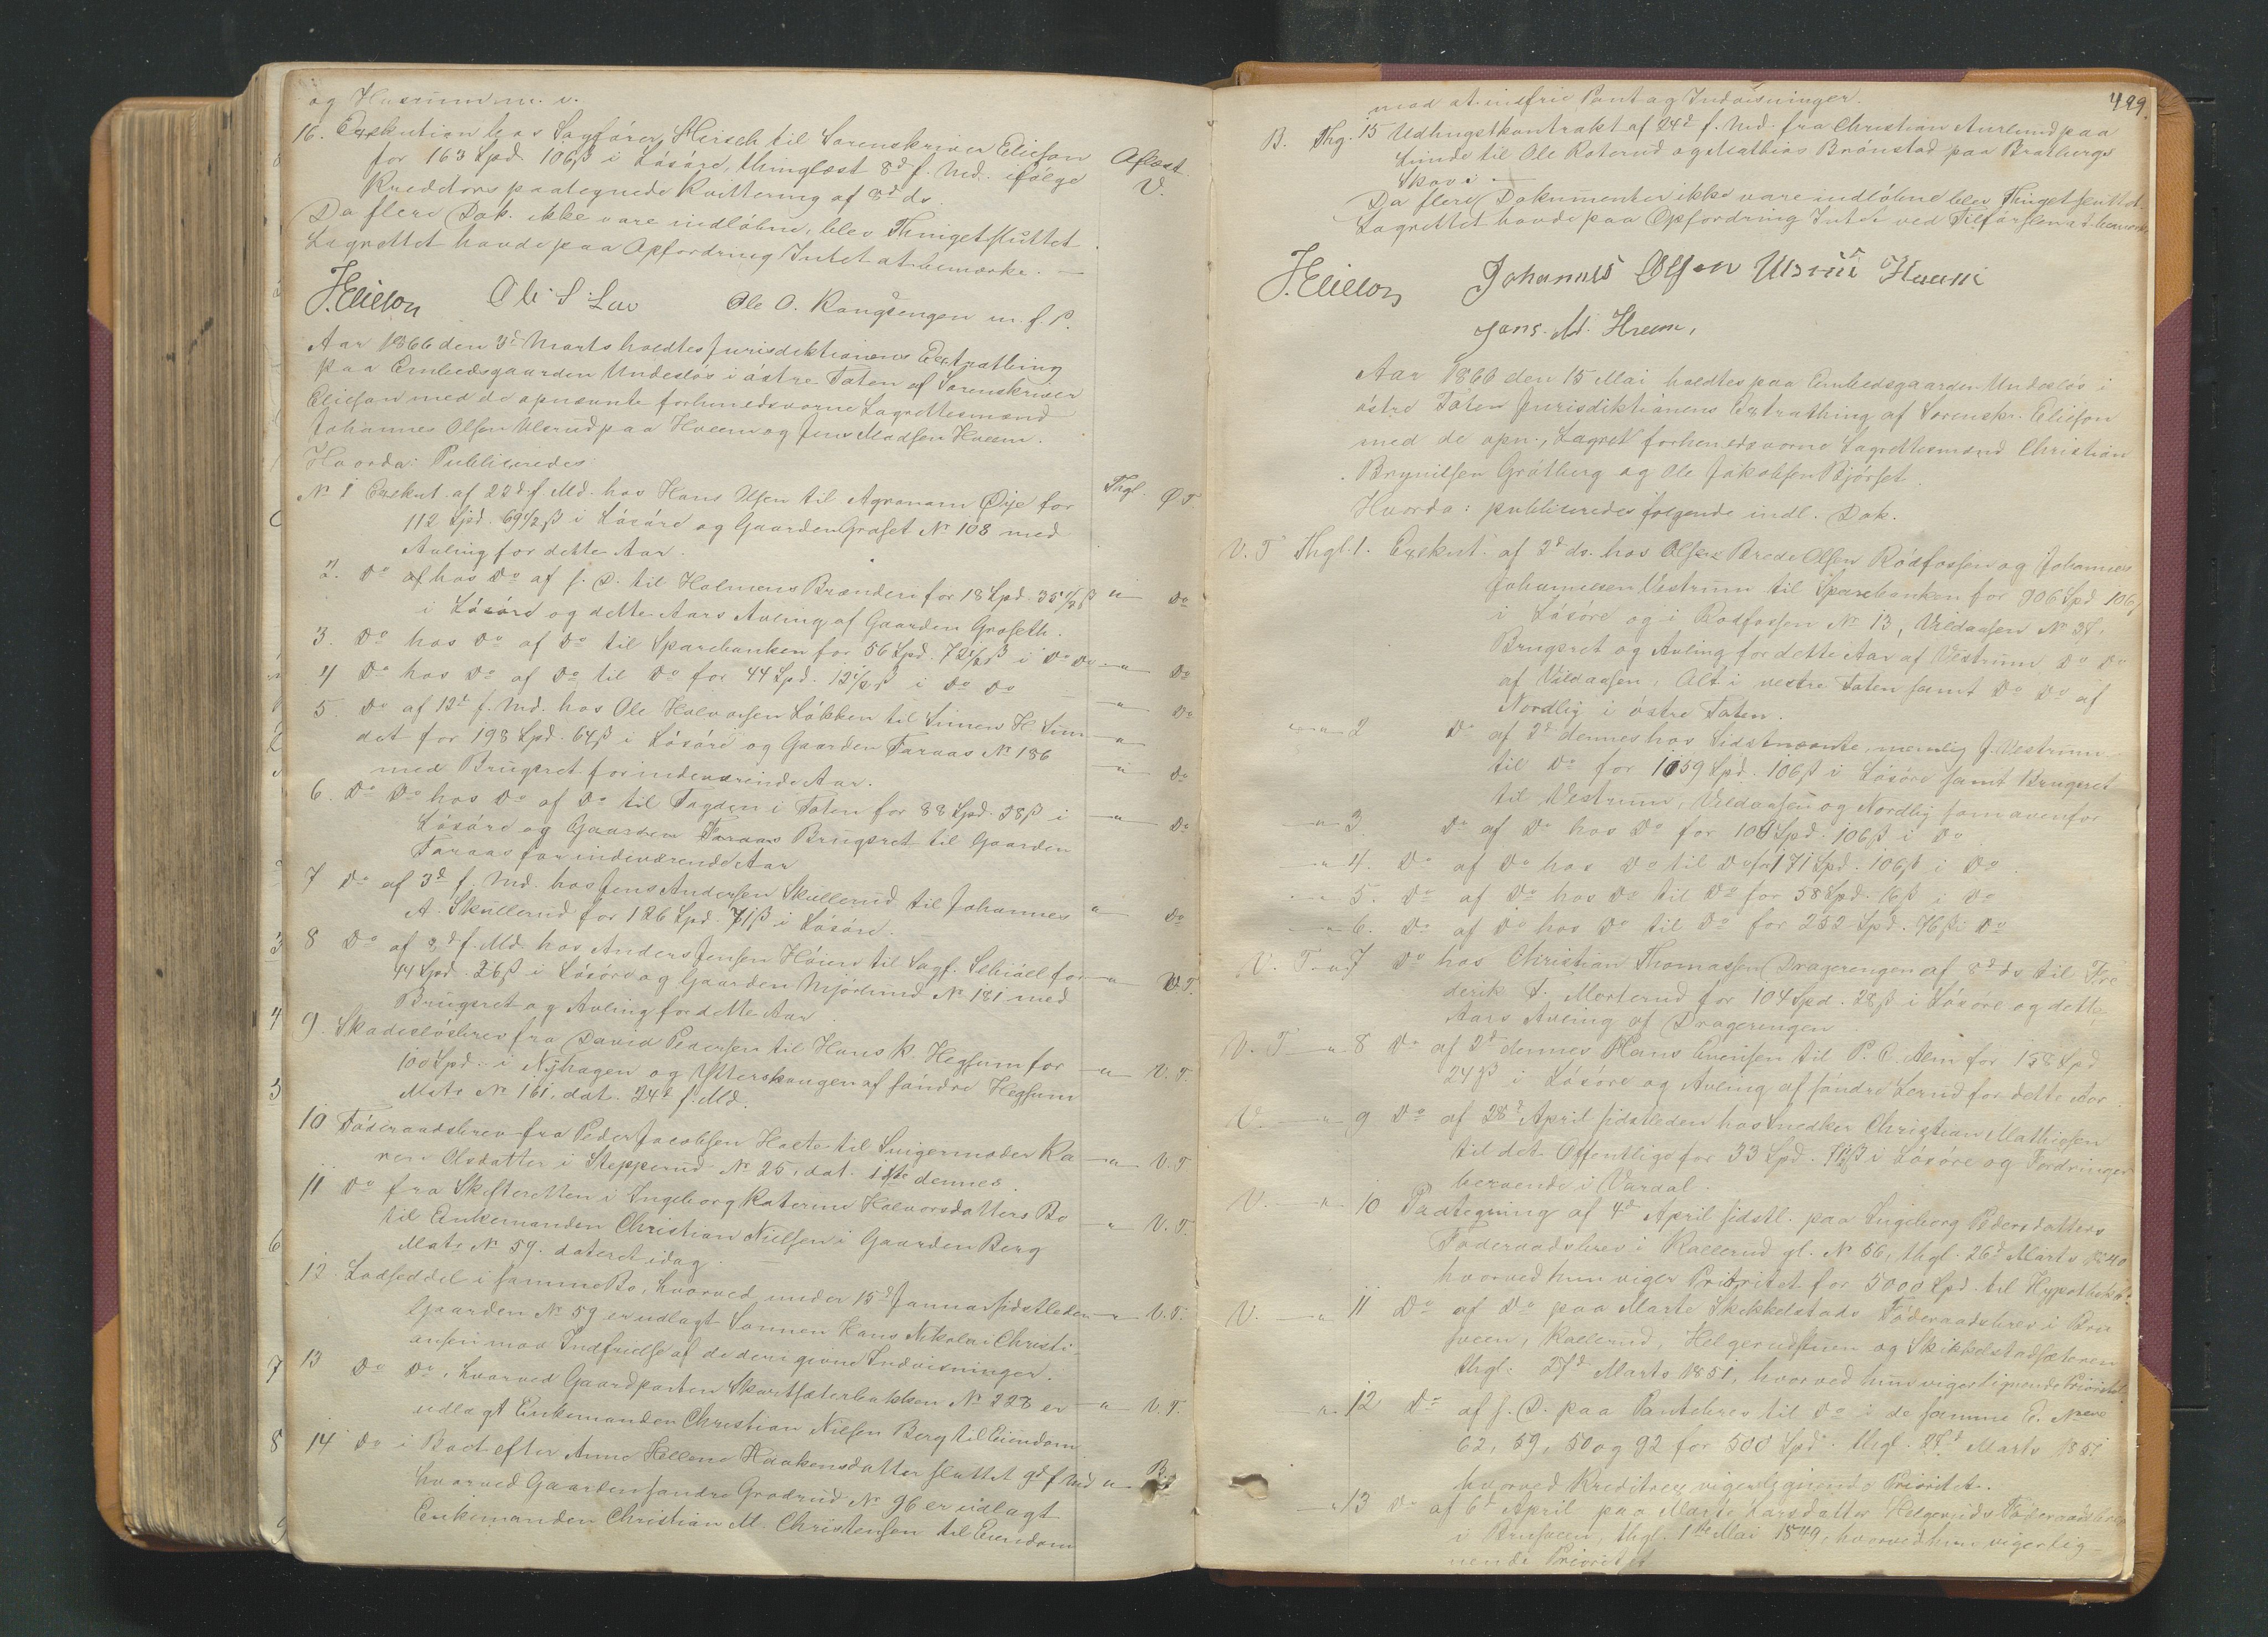 og Husrum m. v.
16. Exekution hos Sagfører Hirsch til Sorenskriver Eliesøn Aflæst
for 163 Spd. 106 ß i Løsøre, thinglæst 8d f. Md. ifølge V.
Kreditors paategnede Kvittering af 8d ds.
Da flere Dok. ikke vare indløbne, blev Thinget sluttet.
Lagrettet havde paa Opfordring Intet at bemærke. —
J. Eliesøn Ole S. Lou Ole O. Kongsengen m. f. P.
Aar 1866 den 3d Marts holdtes Jurisdiktionens Extrathing
paa Embedsgaarden Undeslös i østre Toten af Sorenskriver
Eliesøn med de opnævnte forhenedsvorne Lagrettesmænd
Johannes Olsen Ulsrud paa Hveem og Jens Madsen Hveem.
Hvorda: Publiceredes:
No 1 Exekut. af 22d f. Md. hos Hans Olsen til Agronom Øije for Thgl. Ø T.
112 Spd. 69 1/2 ß i Løsøre og Gaarden Groset No 108 med
Avling for dette Aar.
2. Do af hos Do af s. D. til Holmens Brænderi for 18 Spd. 35 1/2 ß " Do
i Løsøre og dette Aars Avling af Gaarden Groseth.
3. Do hos Do af Do til Sparebanken for 56 Spd. 72 1/2 ß i Do Do — " — Do
4 Do hos Do af Do til Do for 44 Spd. 12 1/2 ß i Do Do — " — Do
5. Do af 12t f. Md. hos Ole Halvorsen Løkken til Simen H. Sun — " —
det for 198 Spd. 64 ß i Løsøre og Gaarden Taraas No 186 — " — Do
med Brugsret for indeværende Aar.
6. Do Do hos Do af Do til Fogden i Toten for 88 Spd. 38 ß i — " — Do
Løsøre og Gaarden Taraas Brugsret til Gaarden
Taraas for indeværende Aar
7 Do af 3d f. Md. hos Jens Andersen Skullerud til Johannes " Do
A. Skullerud for 126 Spd. 71 ß i Løsøre.
8 Do af 8d f. Md. hos Anders Jensen Høien til Sagf. Schiøll for — " — V. T.
44 Spd. 26 ß i Løsøre og Gaarden Mjørlund No 181 med
Brugsret og Avling for dette Aar
9. Skadesløsbrev fra David Pedersen til Hans P. Hegsum for
100 Spd. i Nyhagen og Ytterskougen af søndre Hegsum — " — V. T.
Mats No 161, dat. 24d f. Md.
10 Føderaadsbrev fra Peder Jacobsen Holte til Svigermoder Ka — " — V. T
ren Olsdatter i Stepperud No 25, dat. 1ste dennes.
11 Do fra Skifteretten i Ingeborg Katerine Halvorsdatters Bo — " — V. T.
til Enkemanden Christian Nielsen i Gaarden Berg
Mats No 59. dateret idag. —
12. Lodseddel i samme Bo, hvorved under 15d Januar sidstleden — " — V. T.
Gaarden No 59 er udlagt Sønnen Hans Nikolai Christi-
ansen mod Indfrielse af de deri givne Indvisninger.
13 Do Do, hvorved Gaardparten Skartsæterbakken No 228 er — " — V. T.
udlagt Enkemanden Christian Nielsen Berg til Eiendom
14 Do i Boet efter Anne Hellene Haakensdatter sluttet 9d f. Md " B.
hvorved Gaarden søndre Grødrud No 96 er udlagt
Enkemanden Christian M. Christensen til Eiendom
499.
mod at indfrie Pant og Indvisninger.
B. Thg. 15 Udhugstkontrakt af 24d f. Md. fra Christian Aurlund paa
Linde til Ole Roterud og Mathias Brønstad paa Bratbergs
Skov i —
Da flere Dokumenter ikke vare indløbne blev Thinget sluttet.
Lagrettet havde paa Opfordring Intet ved Tilførslen at bemærke.
J. Eliesøn Johannes Olsen Ulsrud Hveem
Jens. M. Hveem,
Aar 1866 den 15 Mai holdtes paa Embedsgaarden Undeslös i
østre Toten Jurisdiktionens Extrathing af Sorenskr. Eliesøn
med de opn., Lagret forhenedsvorne Lagrettesmænd Christian
Brynilsen Gråtberg og Ole Jakobsen Bjørset.
Hvorda: publiceredes følgende indl. Dok.
V. T Thgl. 1. Exekut. af 2d ds. hos Olsen Brede Olsen Rødfossen og Johannes
Johannesen Vestrum til Sparebanken for 906 Spd 106 ß
i Løsøre og i Rodfossen No 13, Vildaasen No 34.
Brugsret og Avling for dette Aar af Vestrum, Do Do
af Vildaasen, Alt i vestre Toten samt Do Do af
Nordlig i østre Toten.
— " — 2 Do af 2d dennes hos Sidstnævnte, nemlig J. Vestrum
til Do for 1059 Spd. 106 ß i Løsøre samt Brugsret
til Vestrum, Vildaasen og Nordlig som ovenfor
— " 3. Do af Do hos Do for 108 Spd. 106 ß i Do
— " 4. Do af Do hos Do til Do for 171 Spd. 106 ß i Do
— " 5. Do af Do hos Do til Do for 58 Spd. 16 ß i Do
— " 6. Do af Do hos Do til Do for 252 Spd. 46 ß i Do
V. T. — " 7 Do hos Christian Thomassen Dragerengen af 8d ds til Fre
derik T. Morterud for 104 Spd. 28 ß i Løsøre og dette
Aars Avling af Dragerengen
V. T — " 8 Do af 2d dennes Hans Evensen til P. C. Alm for 158 Spd
24 ß i Løsøre og Avling af søndre Lerud for dette Aar.
V. — " 9 Do af 28d April sidstleden hos Snedker Christian Mathiesen
til det Offentlige for 33 Spd. ß i Løsøre og Fordringer
beroende i Vardal.
V. — " 10 Paategning af 4d April sidstl. paa Ingeborg Pedersdatters
Føderaadsbrev i Kallerud gl. No 56, thgl. 26d Marts 1840
hvorved hun viger Prioritet for 5000 Spd. til Hypotheksb.
V. — " 11 Do af Do paa Marte Skikkelstads Føderaadsbrev i Bru
sveen, Kallerud, Helgerudstuen og Skikkelstadsæteren
thgl. 27d Marts 1851, hvorved hun viger lignende Prioritet
— " 12 Do af s. D. paa Pantebrev til Do i de samme E. Nrene
62, 59, 50 og 92 for 500 Spd. thgl. 27d Marts 1851
hvorved Kreditrex viger lignende Prioritet.
— " 13 Do af 6d April paa Marte Larsdatter Helgeruds Føderaadsbrev
i Brusveen, thgl. 1ste Mai 1849, hvorved hun viger lig-
nende Prioritet